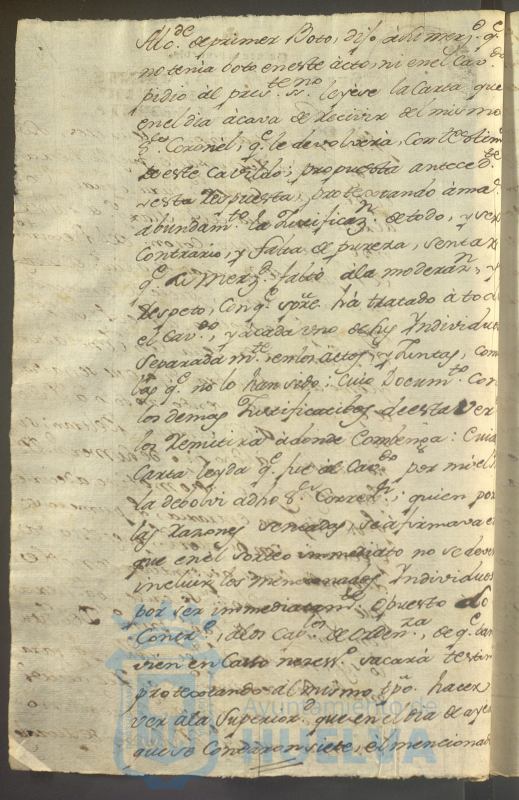 Alc.de de primer Boto, dijo â su mer.d q.e
no tenia boto en este âcto, ni en el Cav.do
pidio âl pres.te no. leyese la Carta que
en el dia âcava de Recivir del mismo
S.or Coronel, q.e le devolverà, con
de este Cavildo; propuesta anteced.te
y esta Respuesta, protestando â ma.r
abundam.to la Justificaz.n de todo, y ser
Contrario, y falta de pureza, sentar
q.e su Merz.d faltò âla moderaz.n, y
Respeto, con q.e spre. hà tratado â todo
el Cav.do, y âcada uno de sus Individuos
Separadam.te, en los actos, y Juntas, como
las q.e no lo han sido: Cuio Docum.to con
los demas Justificatibos de esta Ver
los Remitira â donde Combenga: Cuia
Carta leyda q.e fue âl Cav.do por mi el
la debolvi âdho S.or Corre.r; quien por
las Razones sentadas, se âfirmava en
que en el sorteo immediato no se deven
incluir los mencionados Individuos
por ser immediatam.te opuesto
Contr.o, âlos Cav.les de Orden.za, de q.e tam
vien en Caso neces.o sacarà testim
protestando âl mismo tpo. hacer
ver âla Superior.d que en el Dia de ayer
que se Condaron siete, el mencionad
Ayuntamiento de
HUELVA